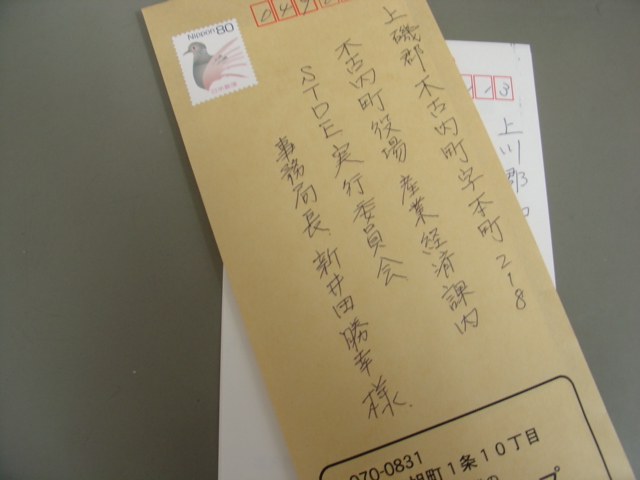 Nippon 80
日本郵便
049
上磯郡木古内町字本町218
木古内町役場 産業経済課内
STDE実行委員会
事務局長 新井田勝幸 様
070-0831
旭町1条10丁目
13
上川郡